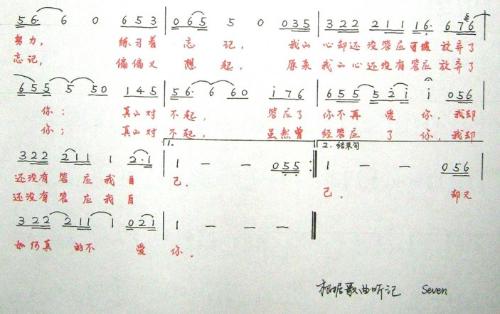 5 6· 6 0 6 5 3 | 0 6 5 5 0 0 3 5 | 3 2 2 2 1 1 1 6· 6 7 6
努力, 练习着 忘记, 我的心却还没答应可以放弃了
忘记, 偏偏又想起, 原来我的心还没有答应放弃了
6 5 5 5 5 0 1 4 5 | 5 6· 6 6 0 i 7 6 | 6 5 5 5 2 i i 0 5 6
你; 真的对不起, 答应了你不再爱你,我却
你; 真的对不起, 虽然曾经答应了你,我却
3 2 2 2 1 1 1 2·1 | 1. 1 - - 0 5 5 :| 2. 结束句 1 - - 0 5 6
还没有答应我自己. 己. 却无
还没有答应我自
3 2 2 2 1 1 1 0 2 1 | 1 - - ‖
如何真的不爱你.
根据歌曲听记 Seven